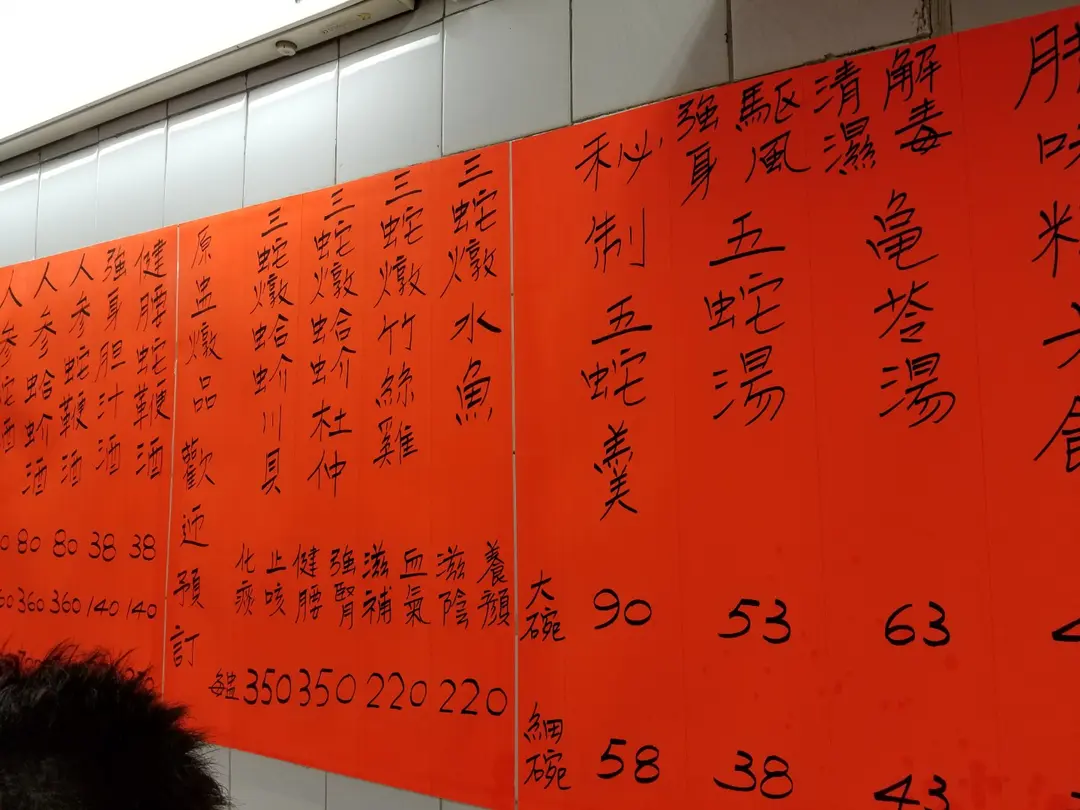 解毒
清濕
亀苓湯
63
43
駆風
強身
五蛇湯
53
38
秘制五蛇羹
90
58
大碗
細碗
三蛇燉水魚
養顏
滋陰
220
三蛇燉竹絲雞
血氣
滋補
220
三蛇燉蛤蚧杜仲
強腎
健腰
350
三蛇燉蛤蚧川貝
止咳
化痰
350
每盅
原盅燉品 歡迎預訂
健腰蛇鞭酒
38
140
強身胆汁酒
38
140
人参蛇鞭酒
80
360
人参蛤蚧酒
80
360
人参蛇酒